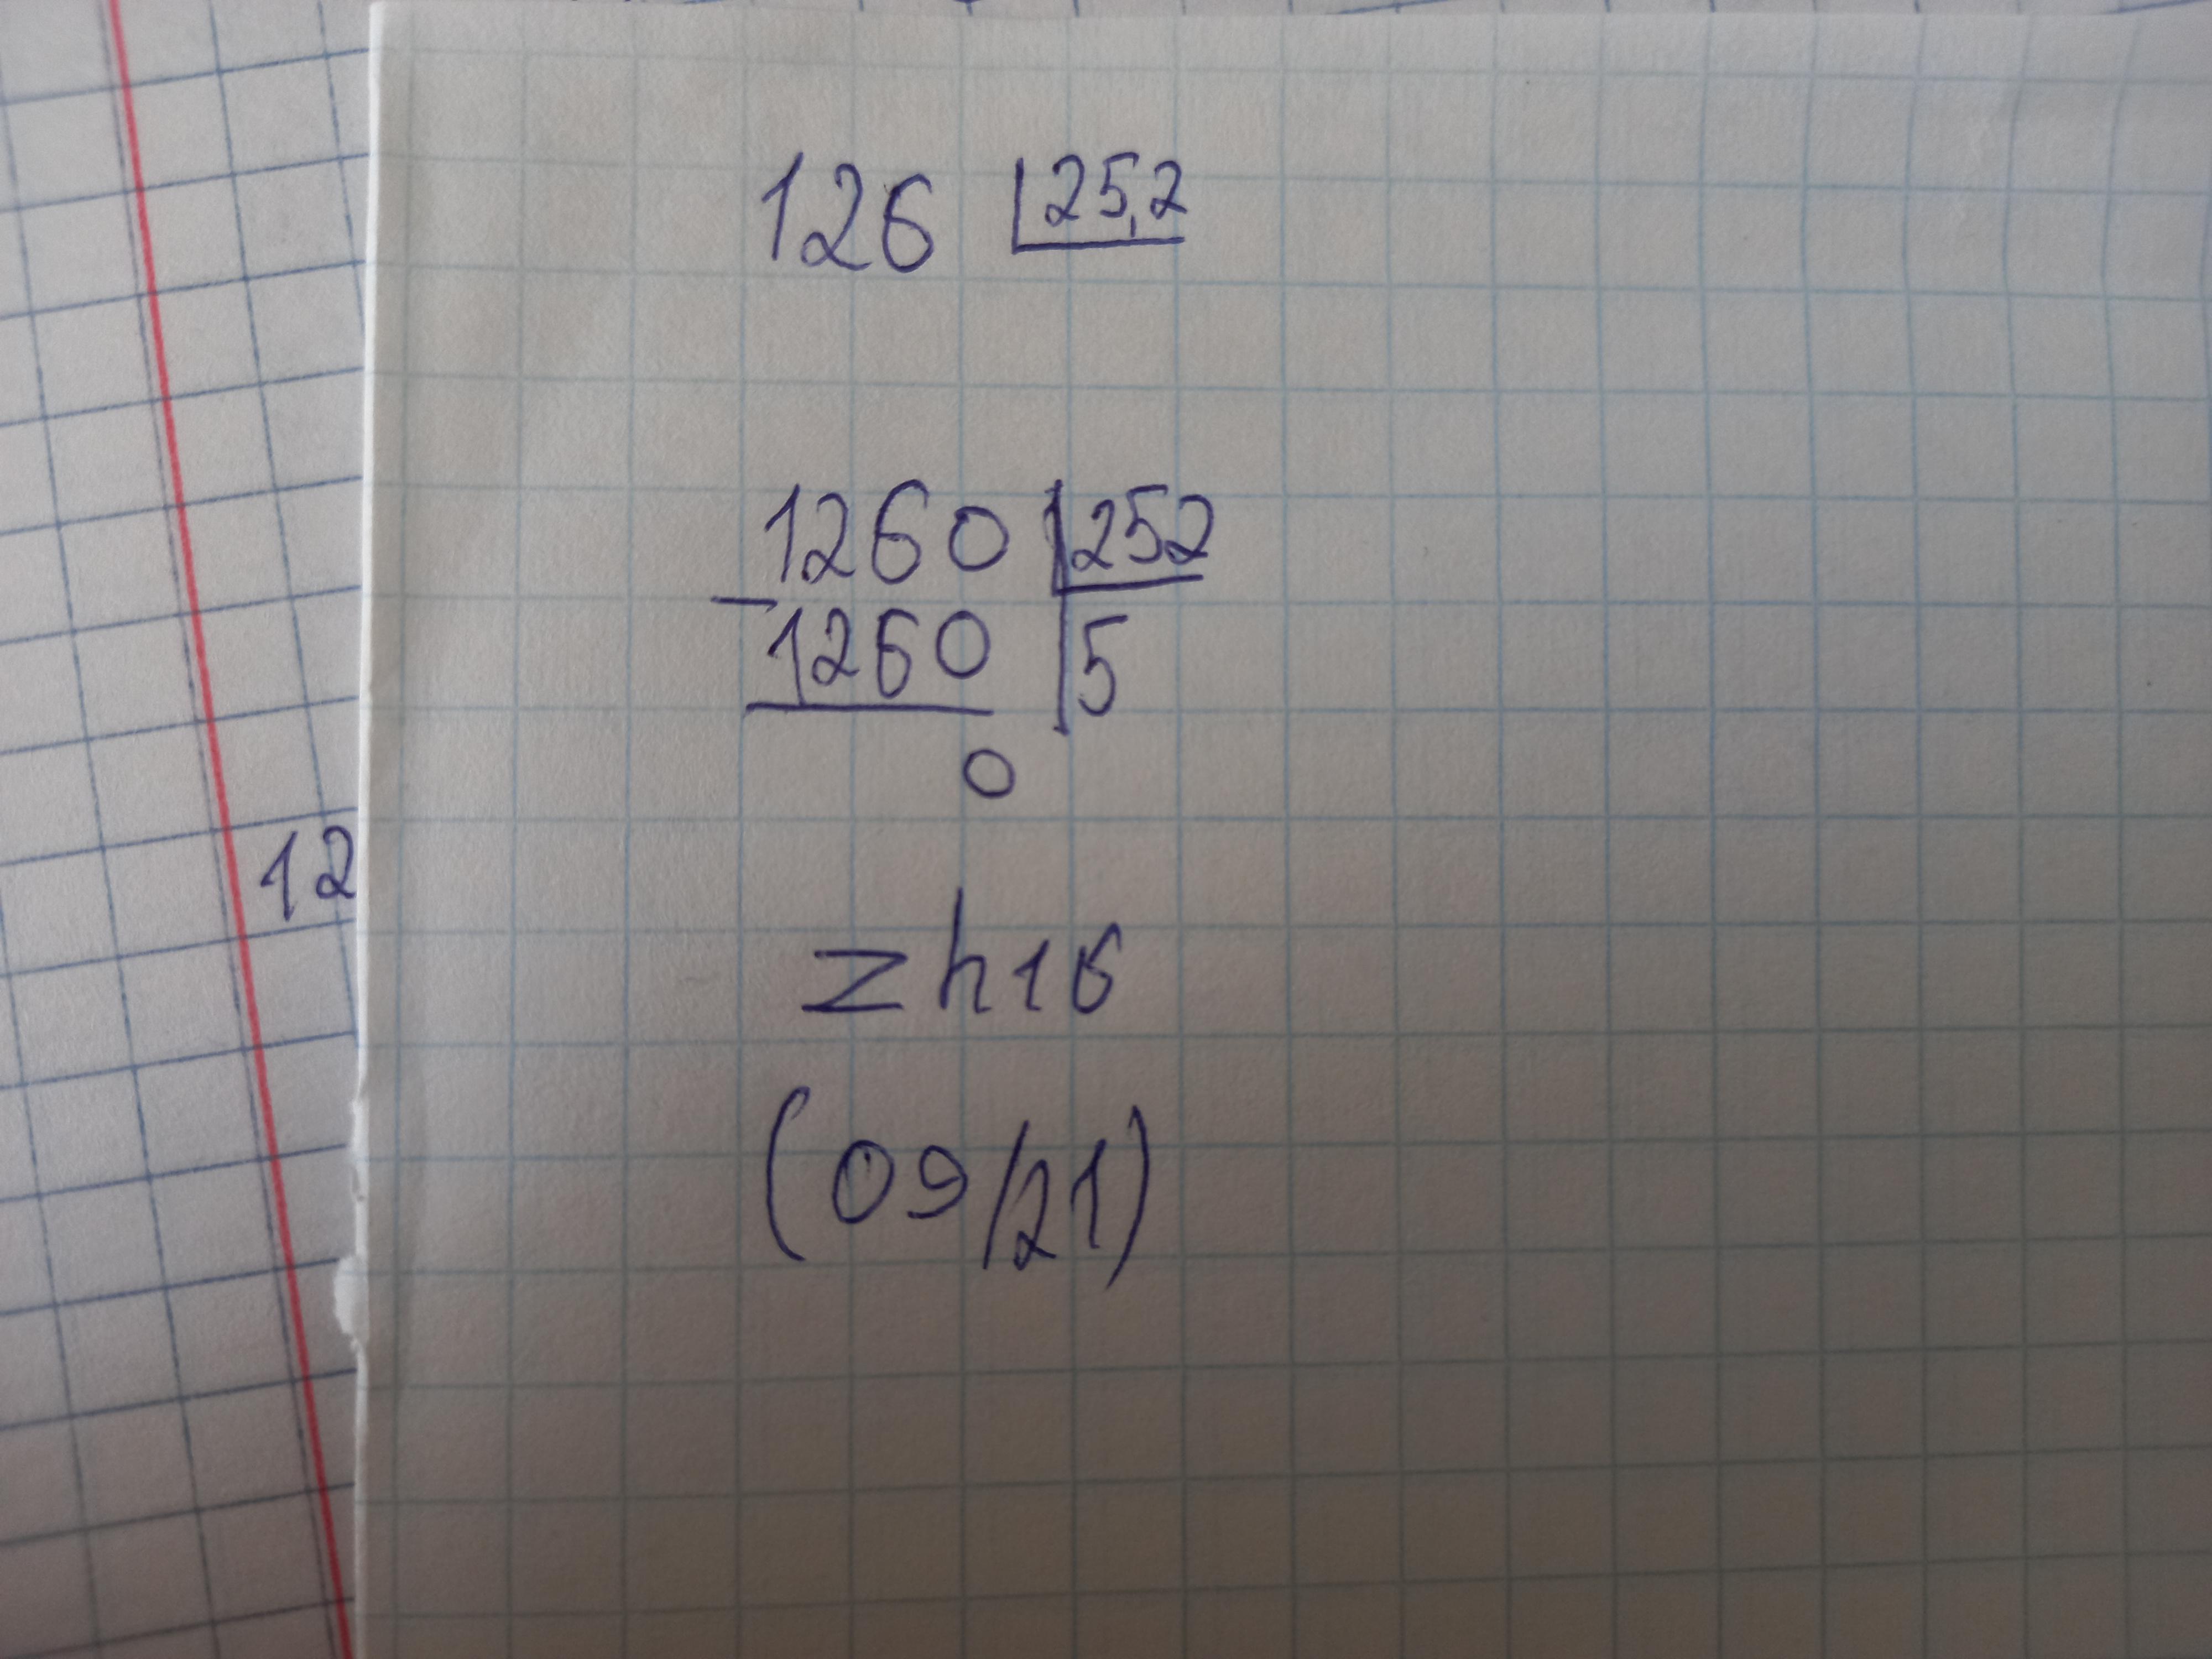 126 25,2
1260 252
- 1260 5
0
12
zh16
(09/21)